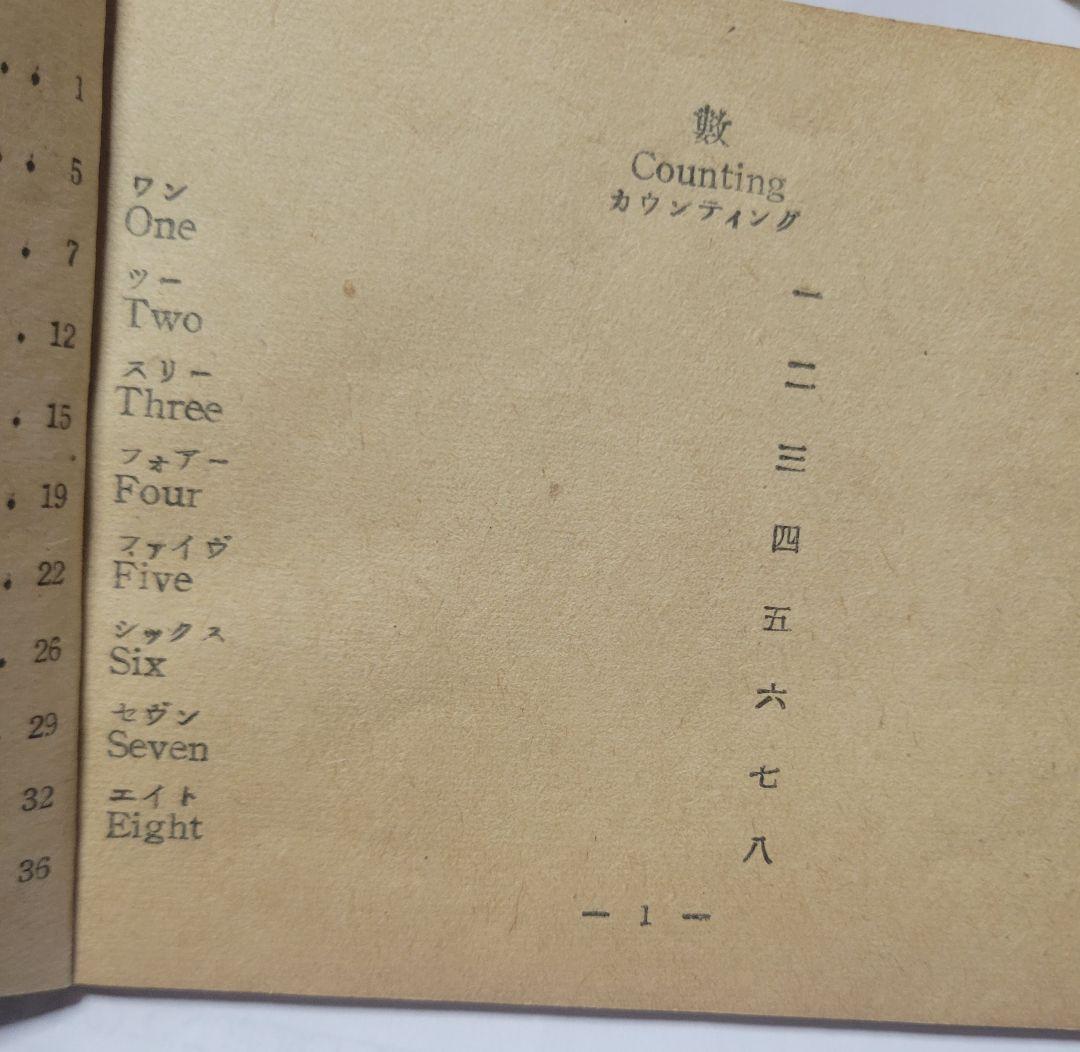 1
5
7
12
15
19
22
26
29
32
36
數
Counting
カウンティング
ワン
One 一
ツー
Two 二
スリー
Three 三
フォアー
Four 四
ファイヴ
Five 五
シックス
Six 六
セヴン
Seven 七
エイト
Eight 八
— 1 —